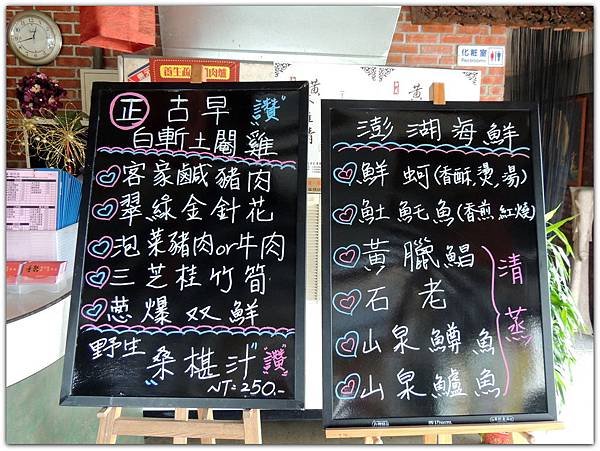 化粧室
Restrooms
養生蔬
黃
正 古早 讚
白斬土閹雞
客家鹹豬肉
翠綠金針花
泡菜豬肉or牛肉
三芝桂竹筍
蔥爆双鮮
野生 桑椹汁 讚
NT=250.-
澎湖海鮮
鮮蚵(香酥,燙,湯)
𩵚魠魚(香煎 紅燒)
黃臘鯧
石老
山泉鱒魚
山泉鱸魚
清蒸